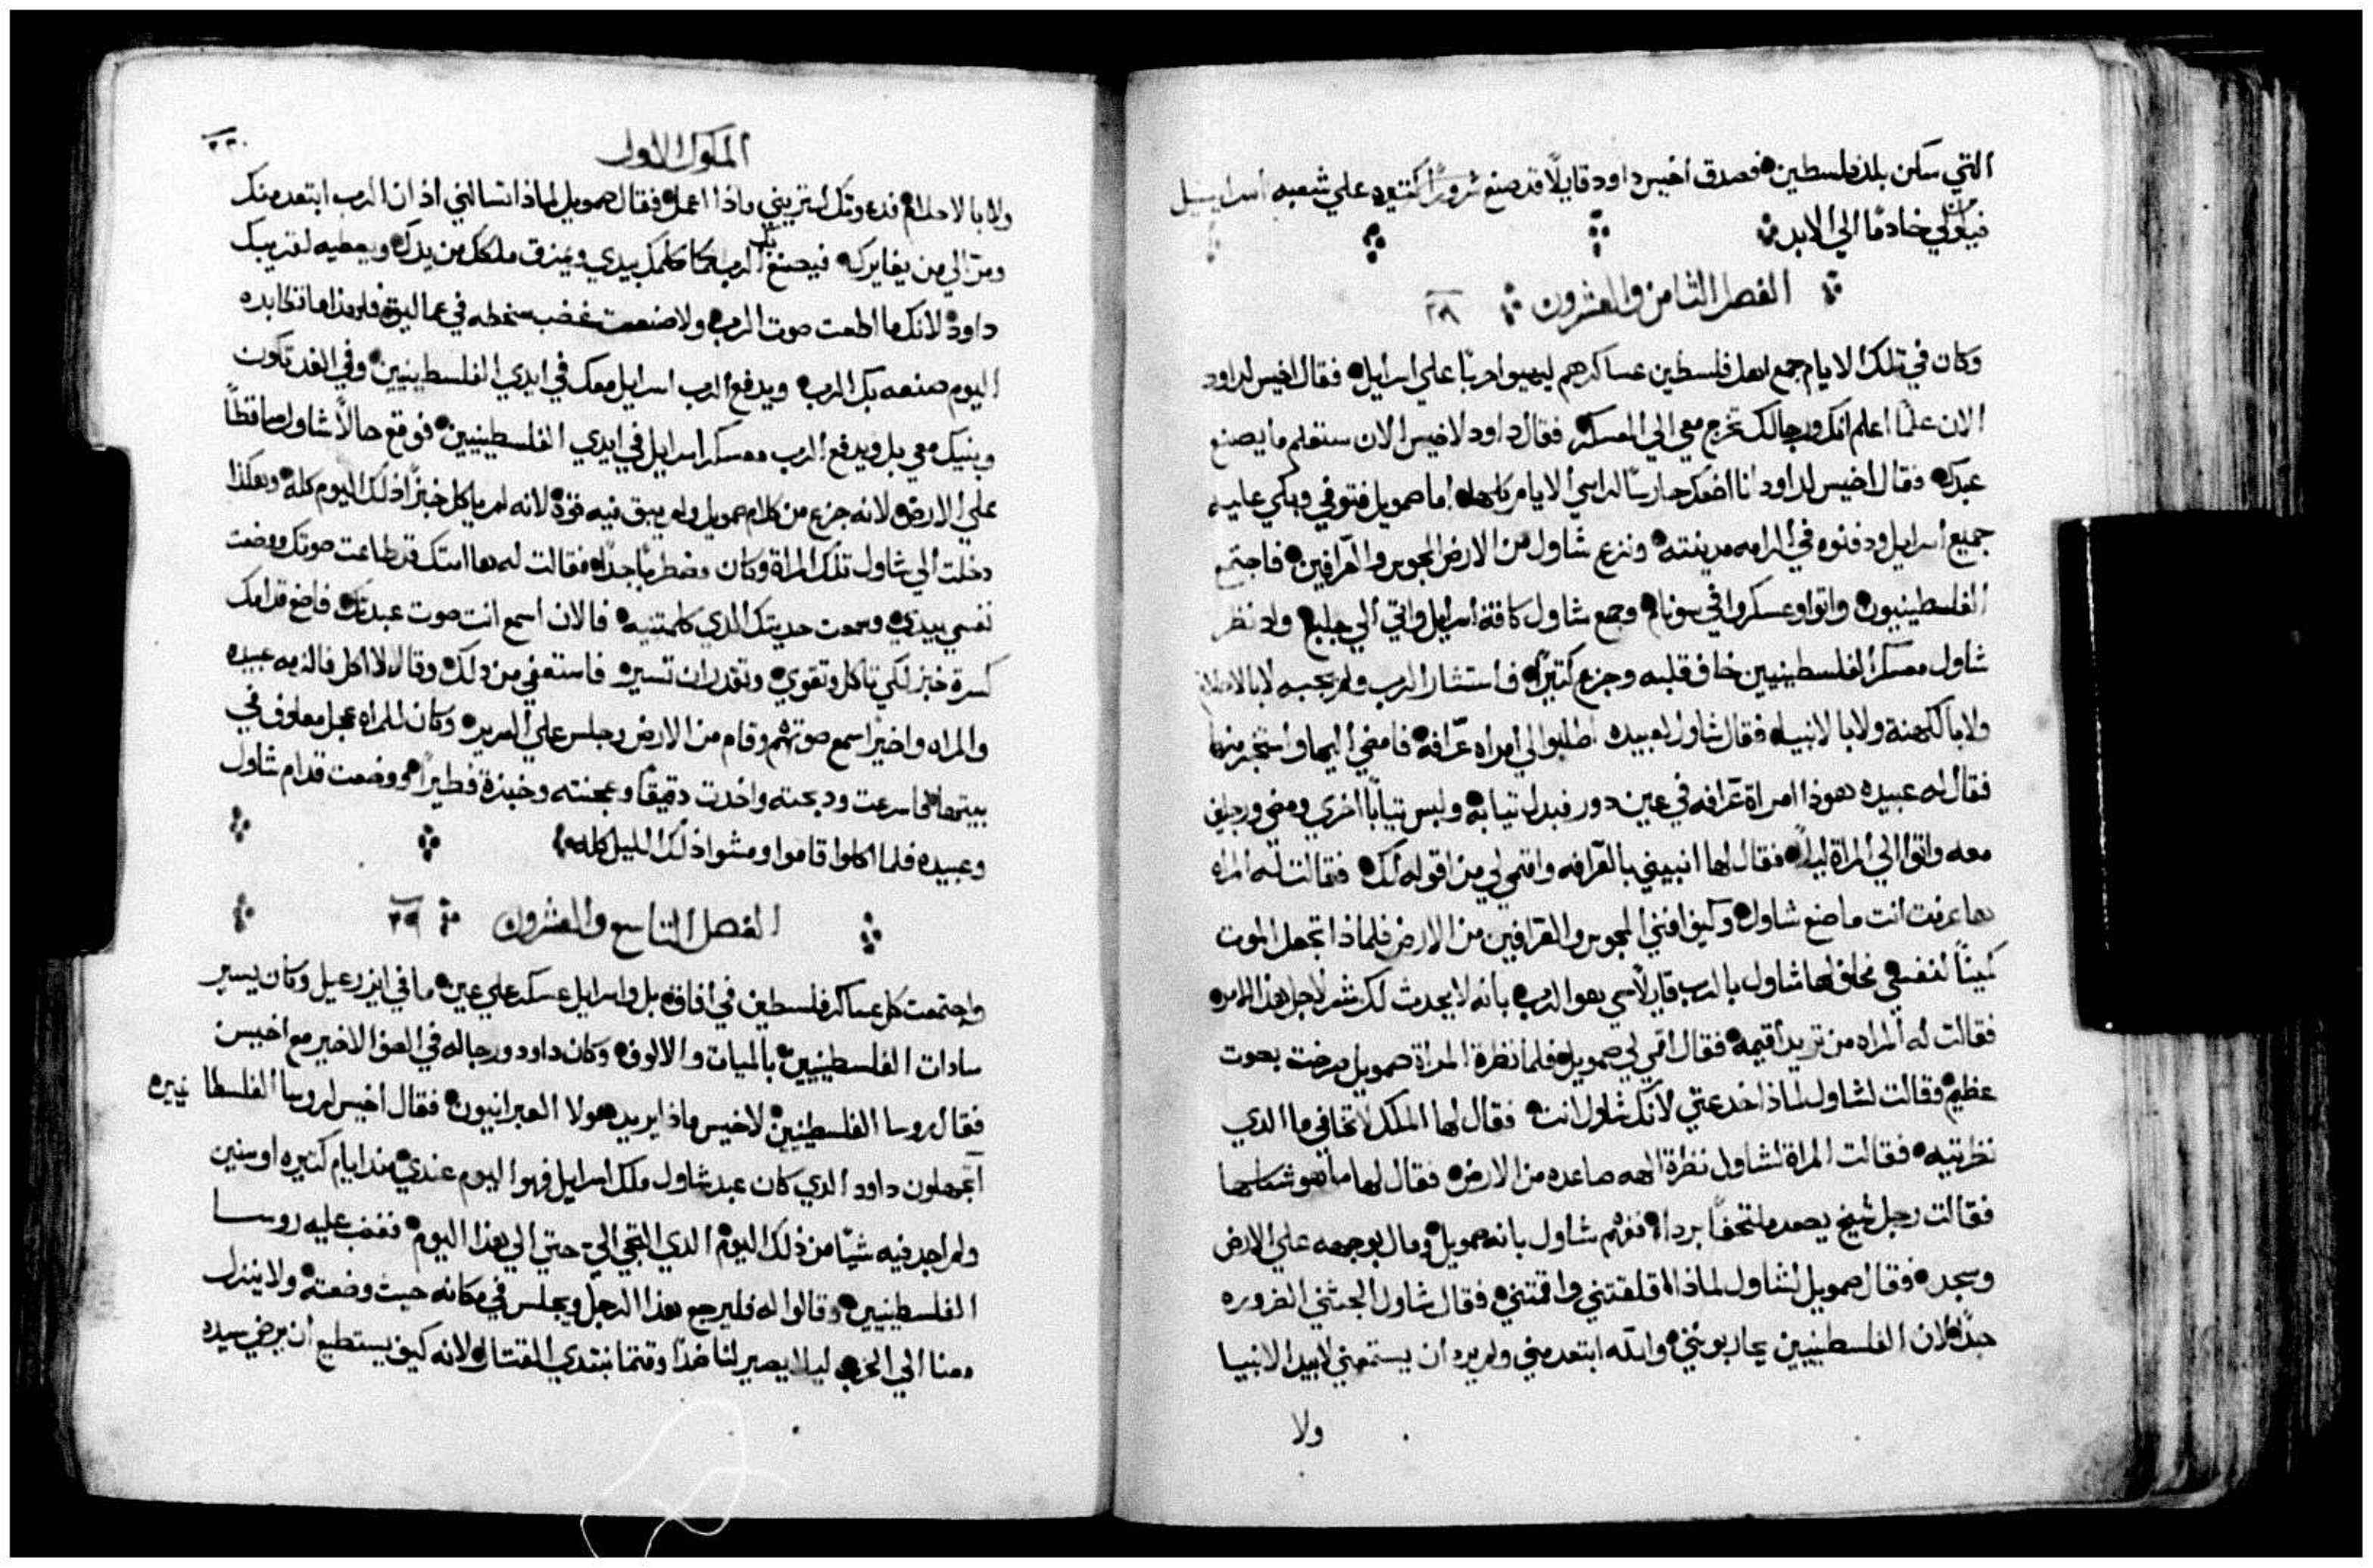 التي سكن بلد فلسطين فصدق اخيس داود قايلًا قد صنع شرورًا كثيره علي شعبه اسراييل
فيكون لي خادمًا الي الابد
الفصل الثامن والعشرون ٢٨
وكان في تلك الايام جمع اهل فلسطين عساكرهم ليهيوا حربًا علي اسرايل فقال اخيس لداود
الان علمًا اعلم انك ورجالك تخرج معي الي العسكر فقال داود لاخيس الان ستعلم ما يصنع
عبدك فقال اخيس لداود انا اضعك حارسًا لراسي الايام كلها اما صمويل فتوفي وبكي عليه
جميع اسرايل ودفنوه في الرامه مدينته ونزع شاول من الارض المجوس والعرافين فاجتمع
الفلسطينيون واتوا وعسكروا في سونام وجمع شاول كافة اسرايل واتي الي جلبع واد نظر
شاول معسكر الفلسطينيين خاف قلبه وجزع كتيرًا فاستشار الرب ولم يجيبه لا بالاحلام
ولا بالكهنة ولا بالانبياء فقال شاول لعبيده اطلبوا لي امراه عرّافة فامضي اليها واستخبر منها
فقال له عبيده هوذا امراة عرّافه في عين دور فبدل تيابه ولبس تيابًا اخري ومضي ورجلين
معه واتوا الي المراة ليلًا فقال لها انبيني بالعرافه واقمي لي من اقوله لك فقالت له المراه
ها عرفت انت ما صنع شاول وكيف افني المجوس والعرافين من الارض فلماذا تجعل الموت
لنفسي فحلف لها شاول بالرب قايلًا حي هو الرب بانه لا يحدث لك شر لاجل هذا الامر
فقالت له المراه من تريد اقيمه فقال اقمي لي صمويل فلما نظرة المراة صمويل صرخت بصوت
عظيم وقالت لشاول لماذا خدعتي لانك شاول انت فقال لها الملك لا تخافي ما الدي
نظرتيه فقالت المراة لشاول نظرة الهه صاعده من الارض فقال لها ما هو شكلها
فقالت رجل شيخ يصعد ملتحفًا برداء ففهم شاول بانه صمويل ومال بوجهه علي الارض
وسجد فقال صمويل لشاول لماذا اقلقتني واقمتني فقال شاول الجتني الضروره
جدًا لان الفلسطينيين يحاربونني والله ابتعد مني ولم يرد ان يستمعني لا بيد الانبيا
ولا
الملوك الاول
٢٣٠
ولا بالاحلام فدعوتك لتريني ماذا اعمل فقال صمويل لماذا تسالني اذ ان الرب ابتعد منك
ومرّ الي من يغايرك فيصنع بك الرب كما كلمك بيدي ويمزق ملكك من يدك ويعطيه لقريبك
داود لانك ما اطعت صوت الرب ولا صنعت غضب سخطه في عماليق فلهذا ما تكابده
اليوم صنعه بك الرب ويدفع الرب اسرايل معك في ايدي الفلسطينيين وفي الغد تكون
وبنيك معي بل ويدفع الرب معسكر اسرايل في ايدي الفلسطينيين فوقع حالًا شاول ساقطًا
علي الارض لانه جزع من كلام صمويل ولم يبق فيه قوة لانه لم ياكل خبزًا ذلك اليوم كله وهكذا
دخلت الي شاول تلك المراة وكان مضطربًا جدًا فقالت له ها امتك قد طاعت صوتك ووضعت
نفسي بيدي وسمعت حديتك الدي كلمتنيه فالان اسمع انت صوت عبدتك فاضع قدامك
كسرة خبز لكي تاكل وتقوي وتقدر ان تسير فاستعفي من دلك وقال لا اكل فالزمه عبيده
والمراه واخيرًا سمع صوتهم وقام من الارض وجلس علي السرير وكان للمراه عجل معلوف في
بيتها فاسرعت ودبحته واخدت دقيقًا وعجنته وخبزة فطيرًا ووضعت قدام شاول
وعبيده فلما اكلوا قاموا ومشوا ذلك الليل كله
الفصل التاسع والعشرون ٢٩
واجتمعت كل عساكر فلسطين في افاق بل واسرايل عسكر علي عين ما في ايزرعيل وكان يسير
سادات الفلسطينيين بالميات والالوف وكان داود ورجاله في الصف الاخير مع اخيس
فقال روسا الفلسطينيين لاخيس ماذا يريد هولا العبرانيون فقال اخيس لروسا الفلسطا نيين
اتجهلون داود الدي كان عبد شاول ملك اسرايل فهوا اليوم عندي مند ايام كتيره او سنين
ولم اجد فيه شيًا من ذلك اليوم الدي التجي اليّ حتي الي هذا اليوم فغضب عليه روسا
الفلسطينيين وقالوا له فليرجع هذا الرجل ويجلس في مكانه حيت وضعته ولا ينزل
معنا الي الحرب ليلا يصير لنا ضدًا وقتما نبتدي القتال لانه كيف يستطيع ان يرضي سيده